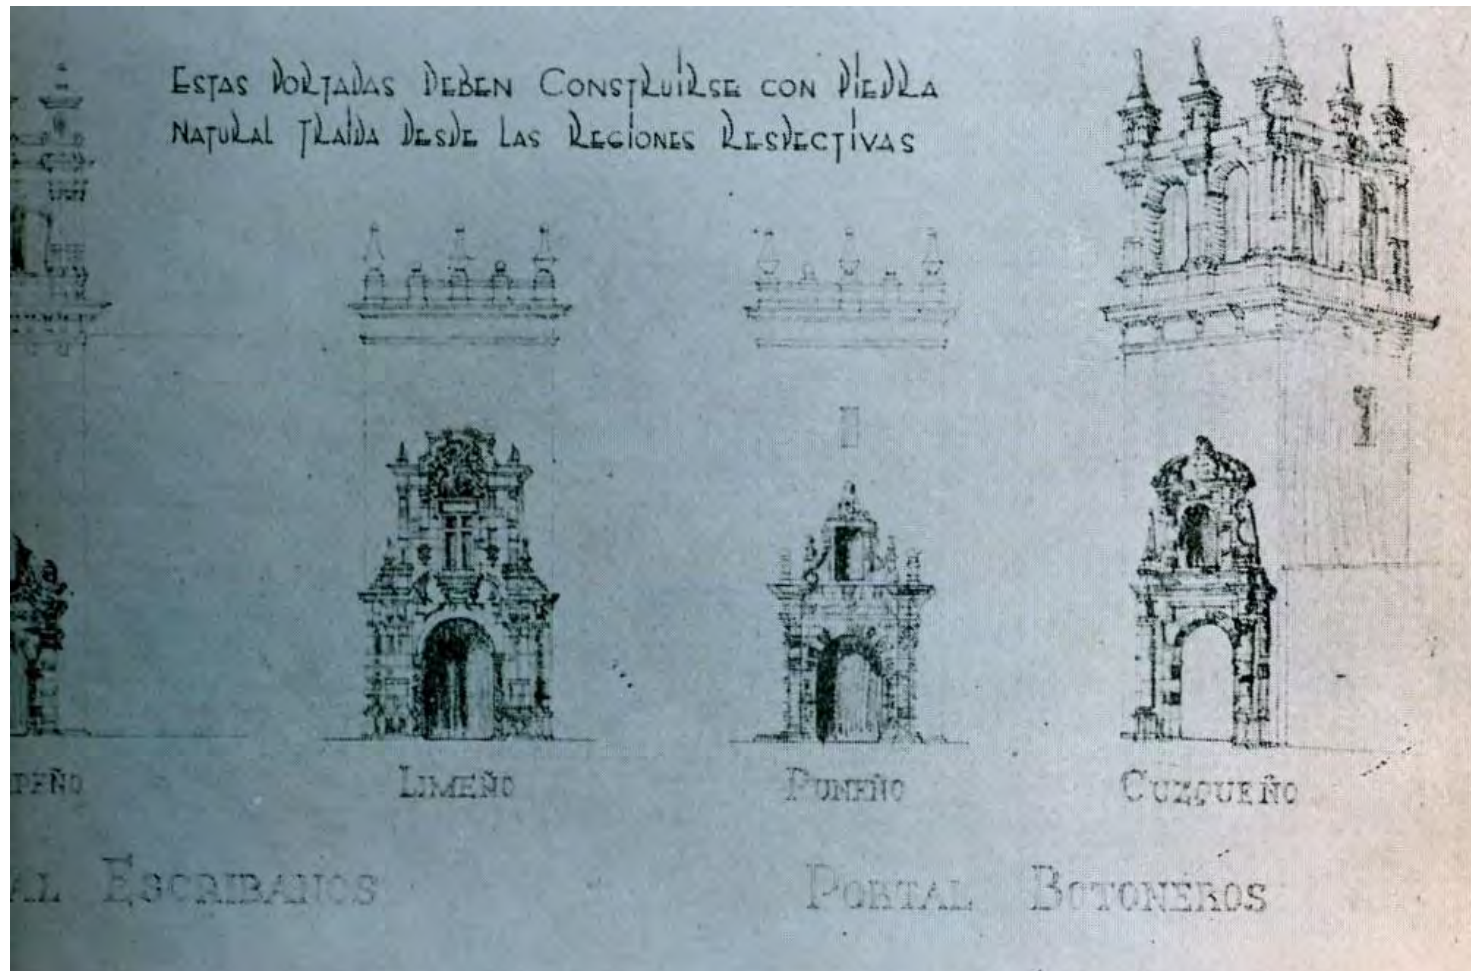 Estas Portadas deben Construirse con piedra
natural traída desde las regiones respectivas
Limeño Puneño Cuzqueño
Escribanos Portal Botoneros